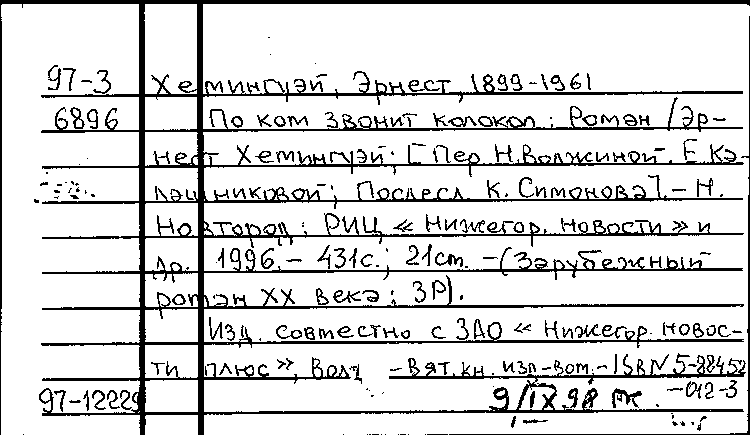 97-3 Хемингуэй, Эрнест, 1899-1961
6896 По ком звонит колокол: Роман / Эр-
нест Хемингуэй; [Пер. Н. Волжиной, Е. Ка-
лашниковой; Послесл. К. Симонова]. - Н.
Новгород: РИЦ «Нижегор. новости» и
др. 1996. - 431с.; 21см. - (Зарубежный
роман XX века: ЗР).
Изд. совместно с ЗАО «Нижегор. новос-
ти плюс», Волг - Вят. кн. изд-вом. - ISBN 5-88452
97-12229 9/IX 98 -012-3